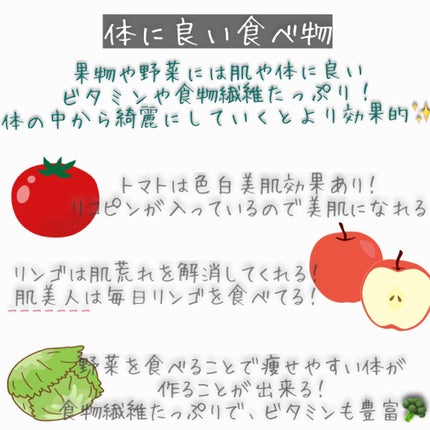 体に良い食べ物
果物や野菜には肌や体に良い
ビタミンや食物繊維たっぷり!
体の中から綺麗にしていくとより効果的✨
トマトは色白美肌効果あり!
リコピンが入っているので美肌になれる
リンゴは肌荒れを解消してくれる!
肌美人は毎日リンゴを食べてる!
野菜を食べることで痩せやすい体が
作ることが出来る!
食物繊維たっぷりで、ビタミンも豊富🥦